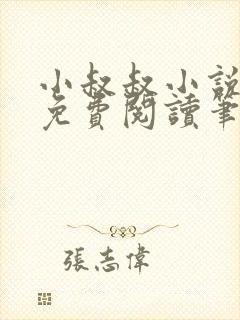 小叔叔小說
免費閱讀筆
張志偉